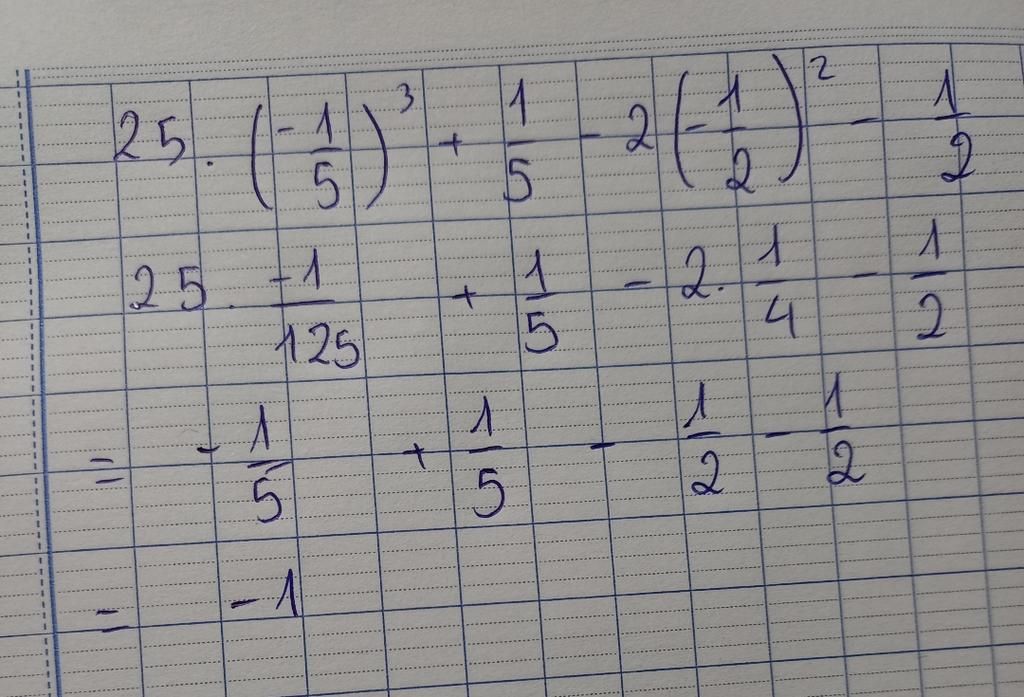 25 . (-1/5)³ + 1/5 - 2(-1/2)² - 1/2
25 . -1/125 + 1/5 - 2. 1/4 - 1/2
= - 1/5 + 1/5 - 1/2 - 1/2
= - 1